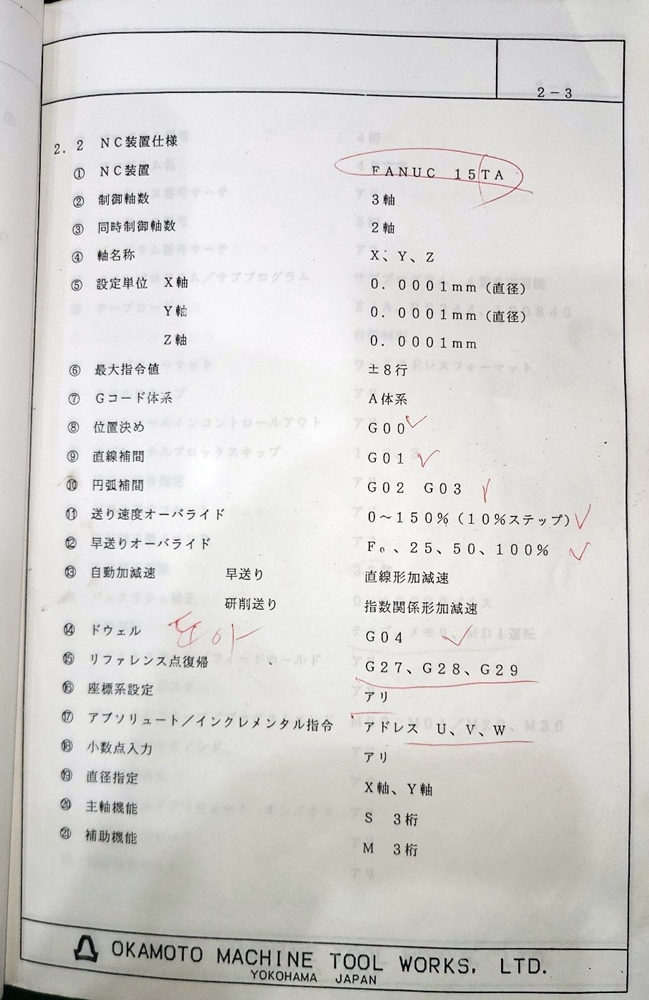 2-3
2.2 NC装置仕様
① NC装置 FANUC 15TA
② 制御軸数 3軸
③ 同時制御軸数 2軸
④ 軸名称 X、Y、Z
⑤ 設定単位 X軸 0.0001mm(直径)
Y軸 0.0001mm(直径)
Z軸 0.0001mm
⑥ 最大指令値 ±8行
⑦ Gコード体系 A体系
⑧ 位置決め G00
⑨ 直線補間 G01
⑩ 円弧補間 G02 G03
⑪ 送り速度オーバライド 0~150%(10%ステップ)
⑫ 早送りオーバライド F₀、25、50、100%
⑬ 自動加減速 早送り 直線形加減速
研削送り 指数関係形加減速
⑭ ドウェル G04
⑮ リファレンス点復帰 G27、G28、G29
⑯ 座標系設定 アリ
⑰ アブソリュート/インクレメンタル指令 アドレス U、V、W
⑱ 小数点入力 アリ
⑲ 直径指定 X軸、Y軸
⑳ 主軸機能 S 3桁
㉑ 補助機能 M 3桁
OKAMOTO MACHINE TOOL WORKS, LTD.
YOKOHAMA JAPAN